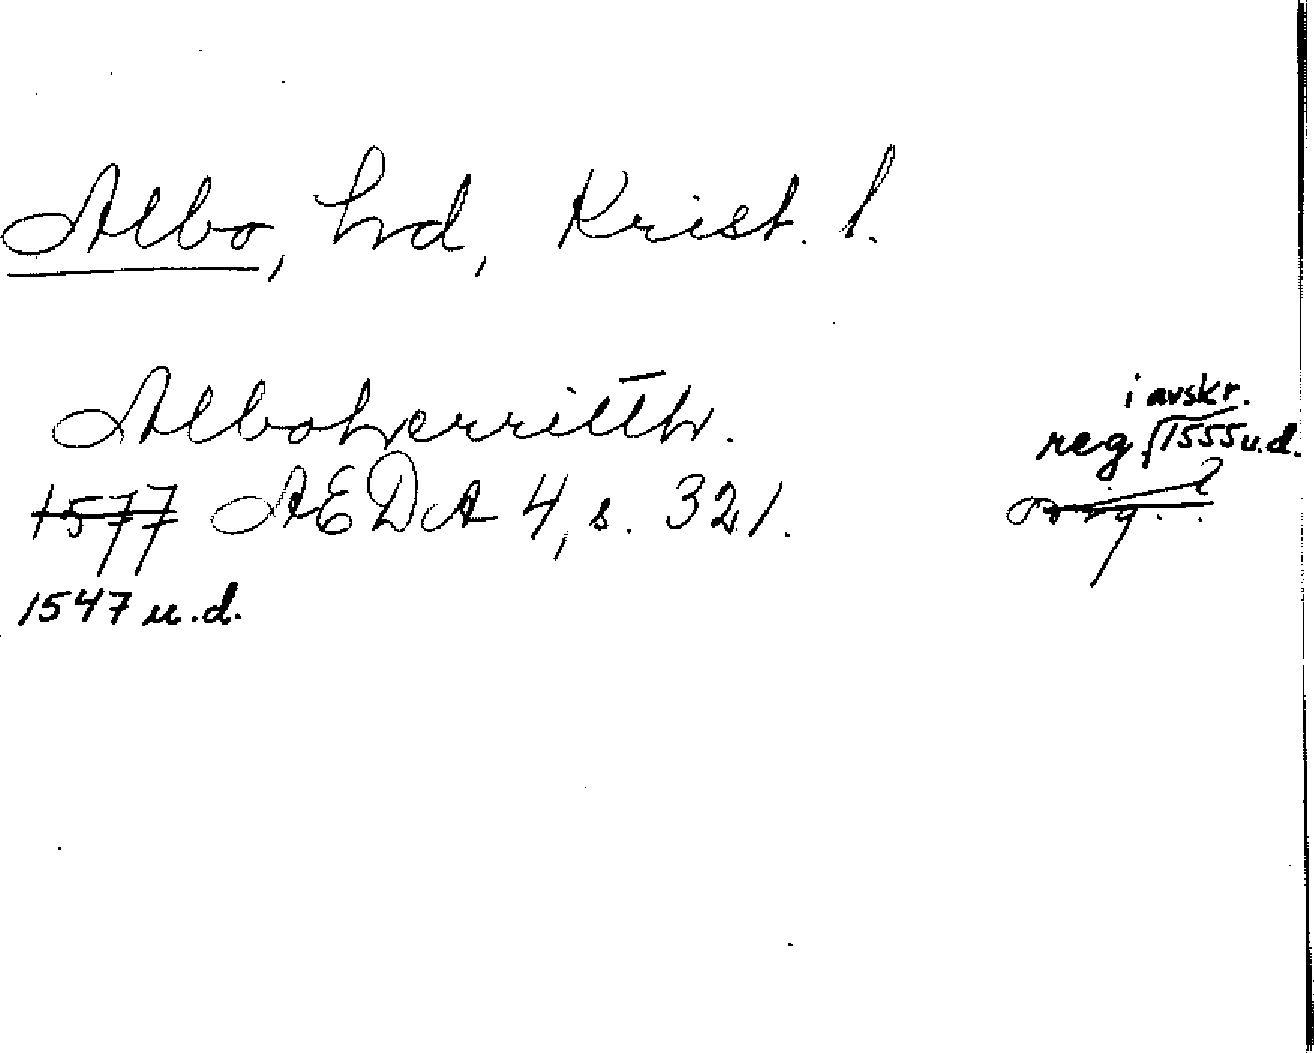 Albo, hd, Krist. l.
Alboherritth.
i avskr.
reg 1555 u.d.
1577 AEDA 4, s. 321.
1547 u.d.